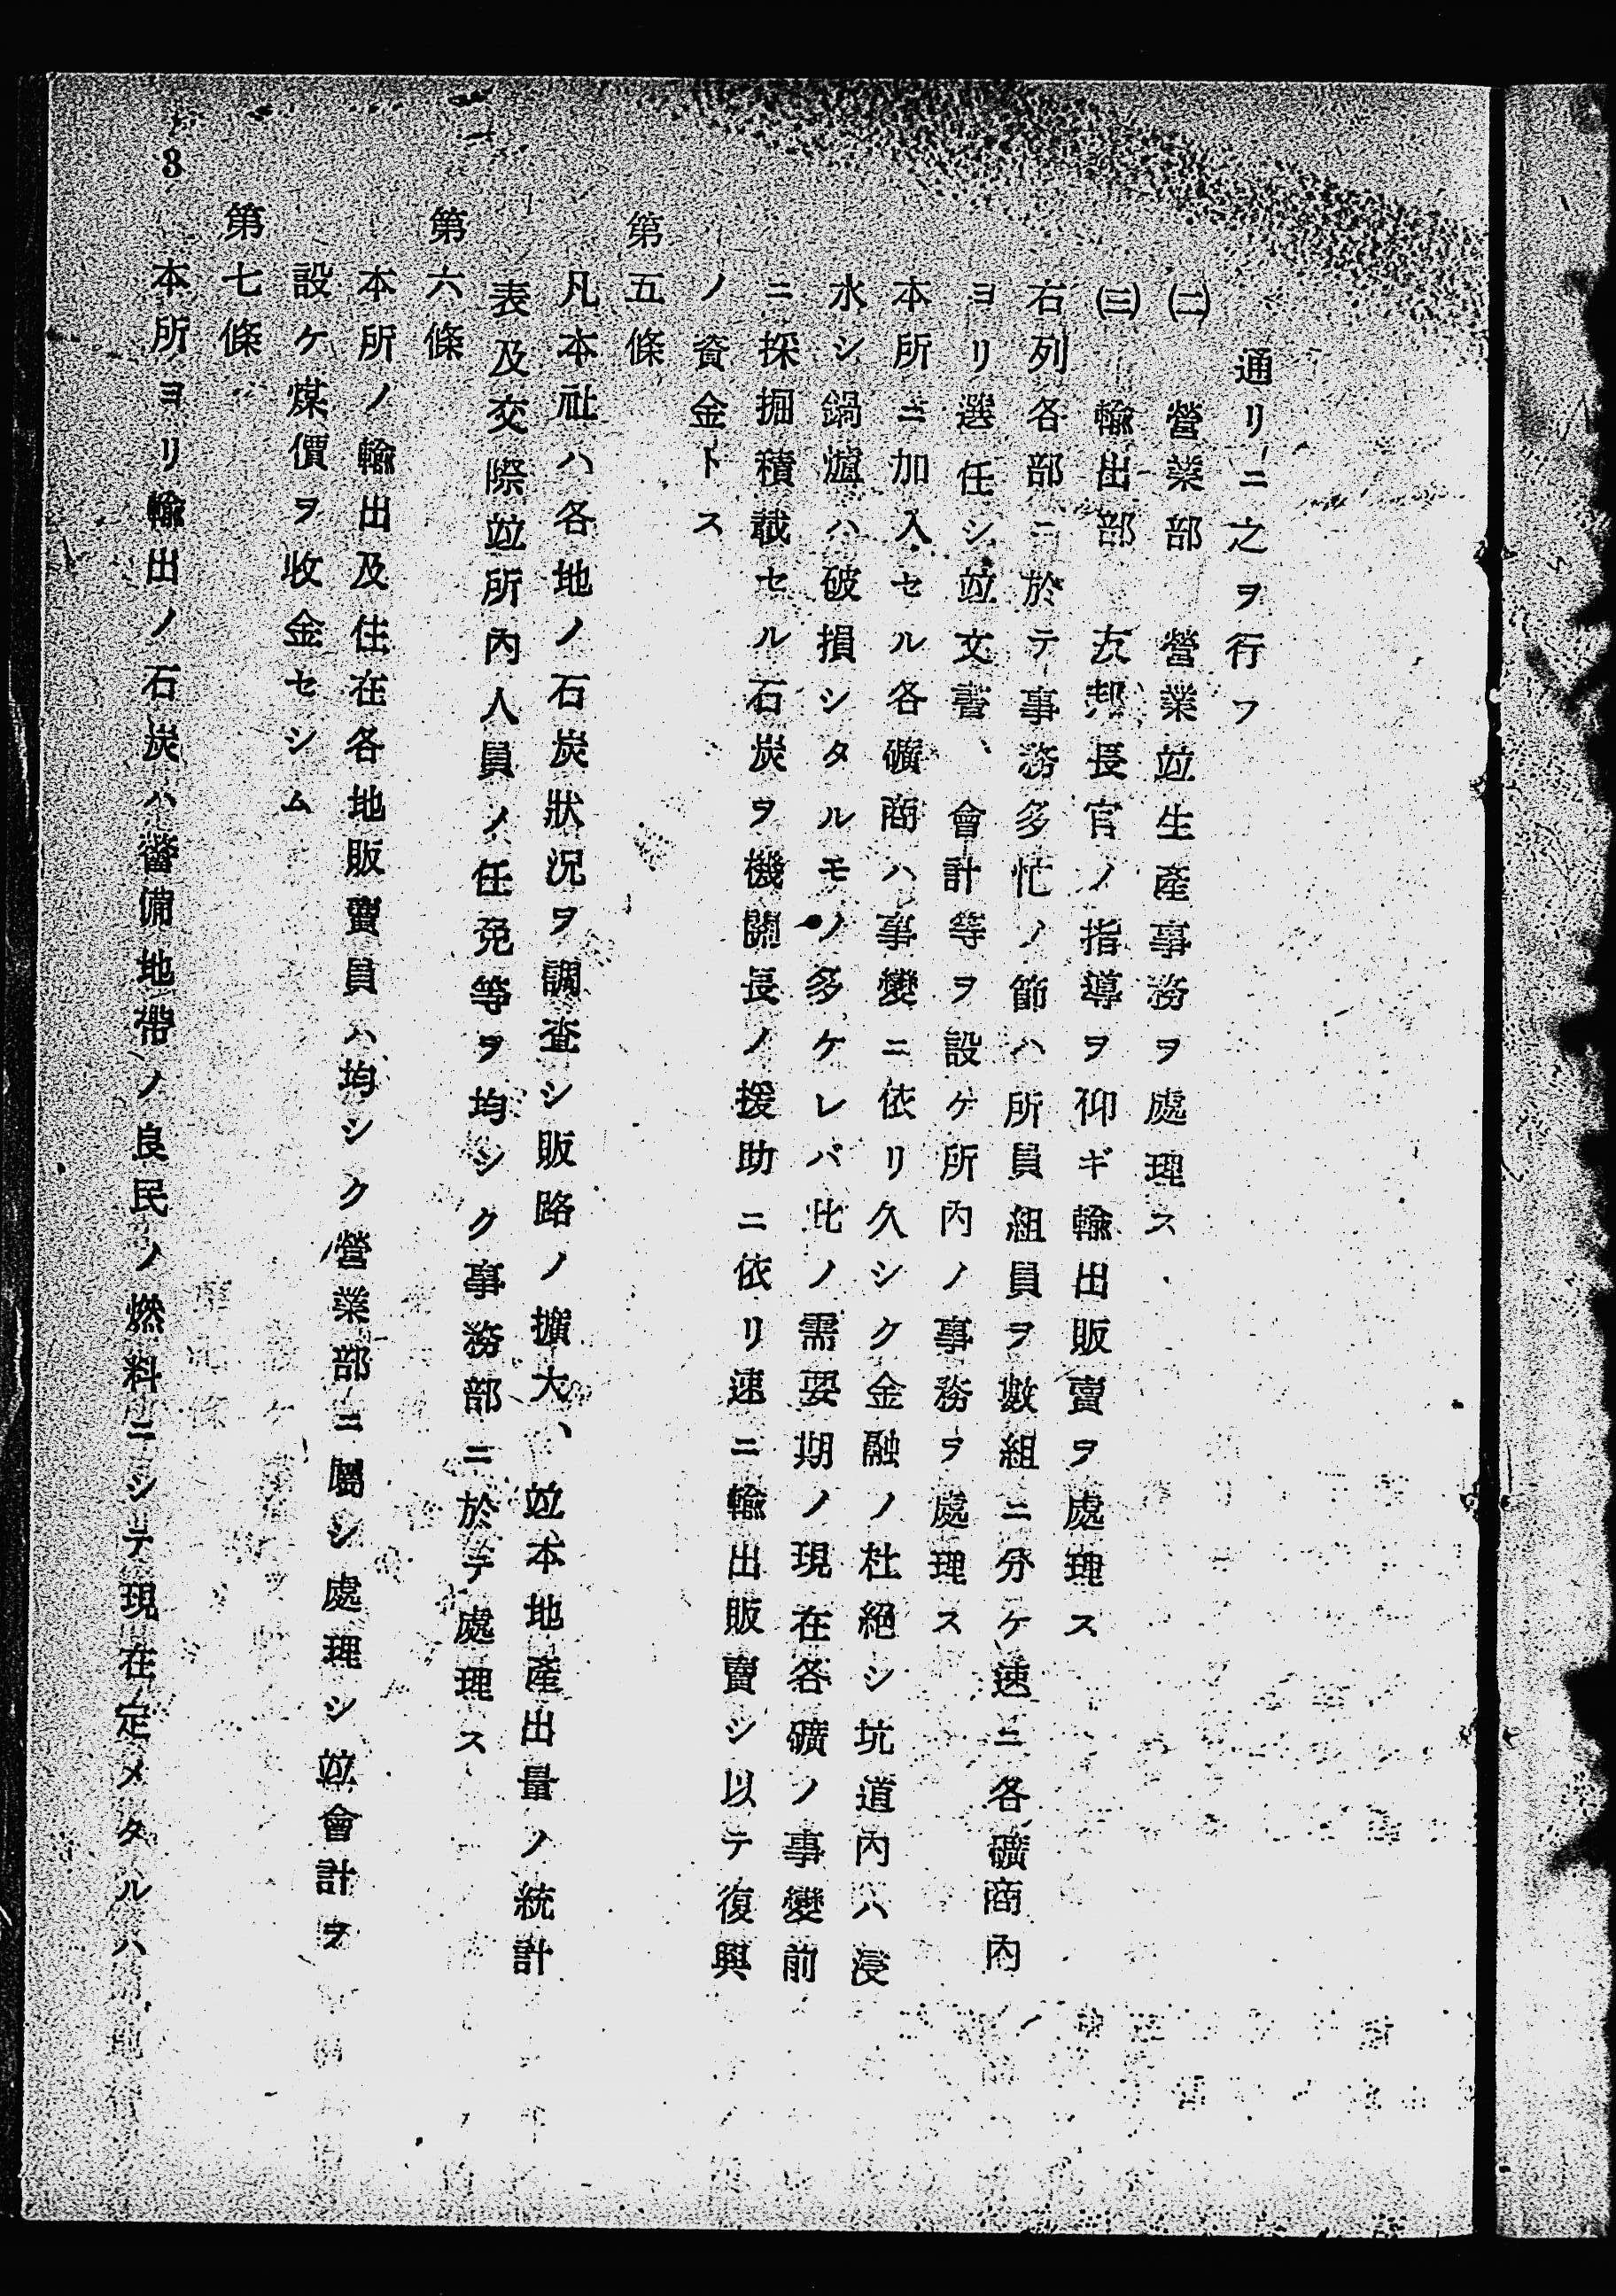 通リニ之ヲ行フ
㈡ 營業部 營業竝生產事務ヲ處理ス
㈢ 輸出部 友邦長官ノ指導ヲ仰ギ輸出販賣ヲ處理ス
右列各部ニ於テ事務多忙ノ節ハ所員組員ヲ數組ニ分ケ速ニ各礦商內
ヨリ選任シ竝文書、會計等ヲ設ケ所內ノ事務ヲ處理ス
本所ニ加入セル各礦商ハ事變ニ依リ久シク金融ノ杜絕シ坑道內ハ浸
水シ鍋爐ハ破損シタルモノ多ケレバ此ノ需要期ノ現在各礦ノ事變前
ニ採掘積載セル石炭ヲ機關長ノ援助ニ依リ速ニ輸出販賣シ以テ復興
ノ資金トス
第五條
凡本社ハ各地ノ石炭狀況ヲ調査シ販路ノ擴大、竝本地產出量ノ統計
表及交際竝所內人員ノ任免等ヲ均シク事務部ニ於テ處理ス
第六條
本所ノ輸出及住在各地販賣員ハ均シク營業部ニ屬シ處理シ竝會計ヲ
設ケ煤價ヲ收金セシム
第七條
本所ヨリ輸出ノ石炭ハ警備地帶ノ良民ノ燃料ニシテ現在定メタルハ
3